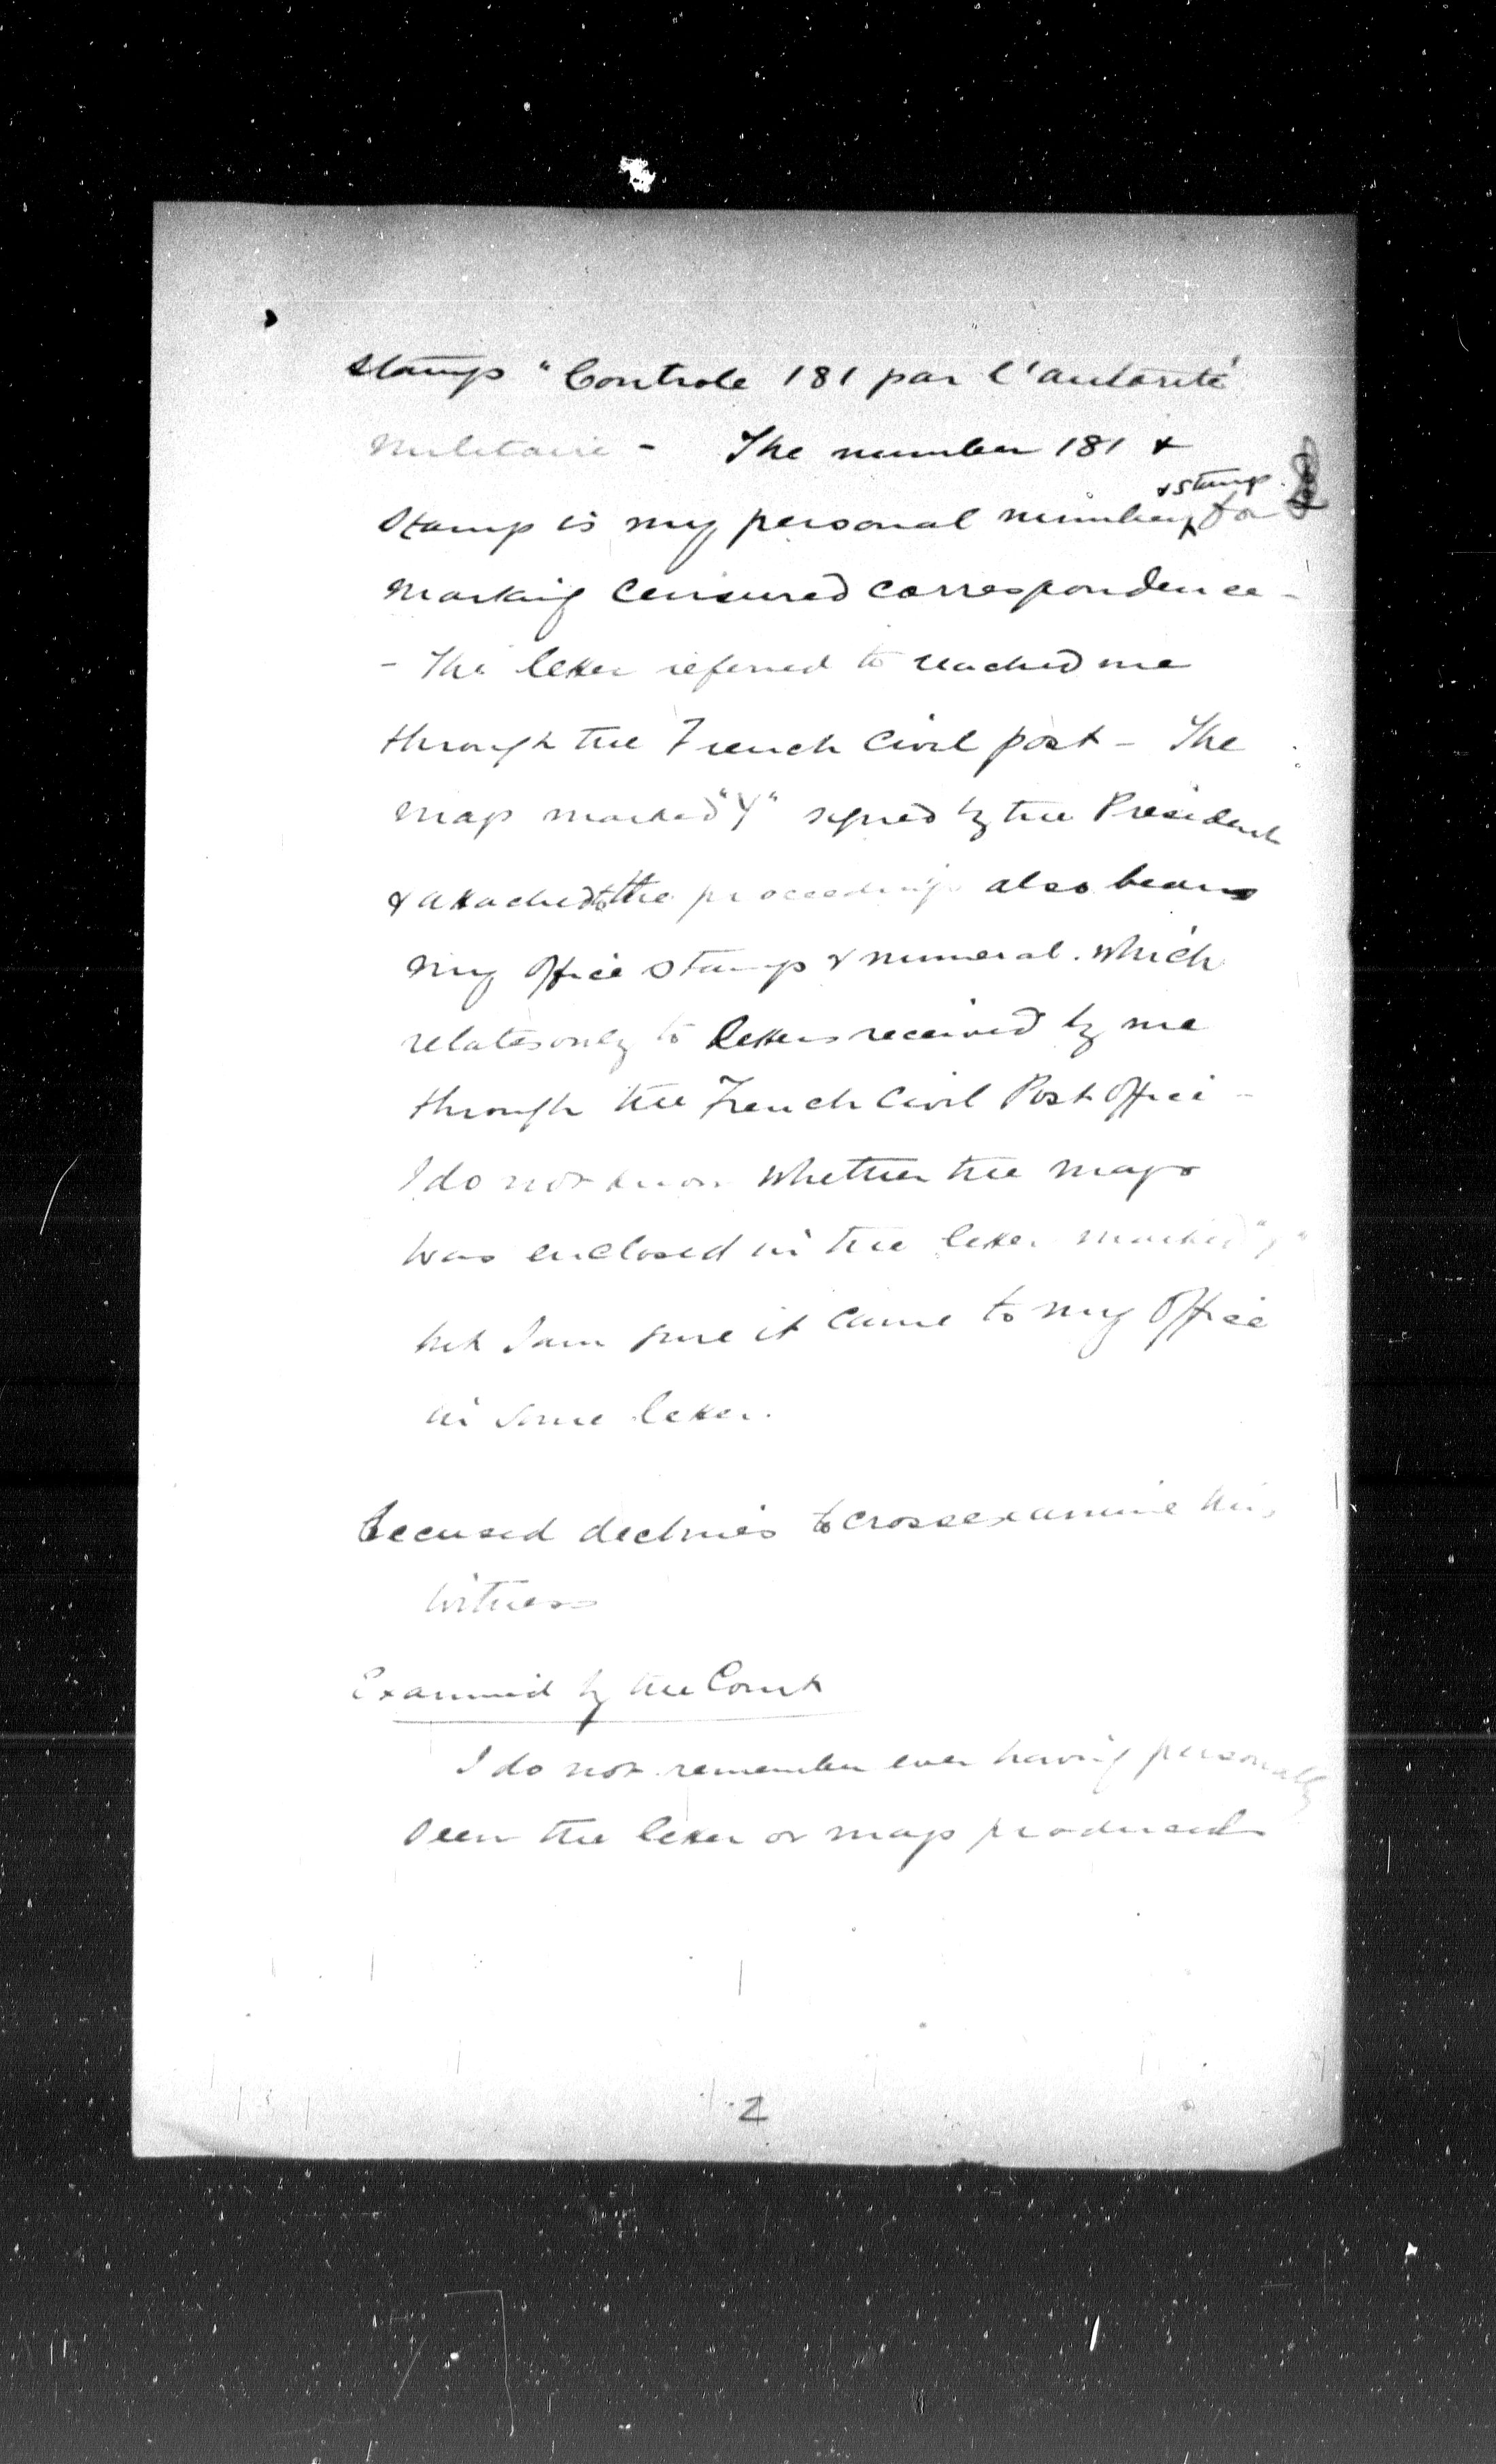 stamp "Controle 181 par l'autorité
Militaire - The number 181 &
& stamp
stamp is my personal number for
marking Censured correspondence -
- The letter referred to reached me
through the French Civil post - The
map marked "Y" signed by the President
& attached to the proceedings also bears
my office stamp & numeral. which
relates only to letters received by me
through the French Civil Post Office -
I do not know whether the map
was enclosed in the letter marked
but I am sure it came to my Office
in some letter.
Accused declines to cross examine this
witness
Examined by the Court
I do not remember ever having personally
seen the letter or map produced
2